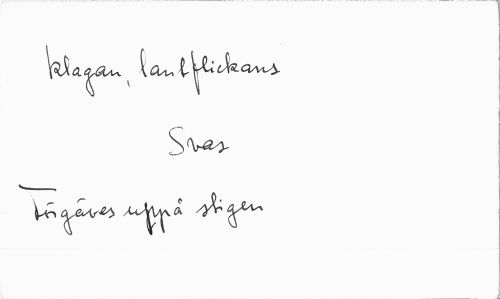 Klagan, lantflickans
Svar
Förgäves uppå stigen